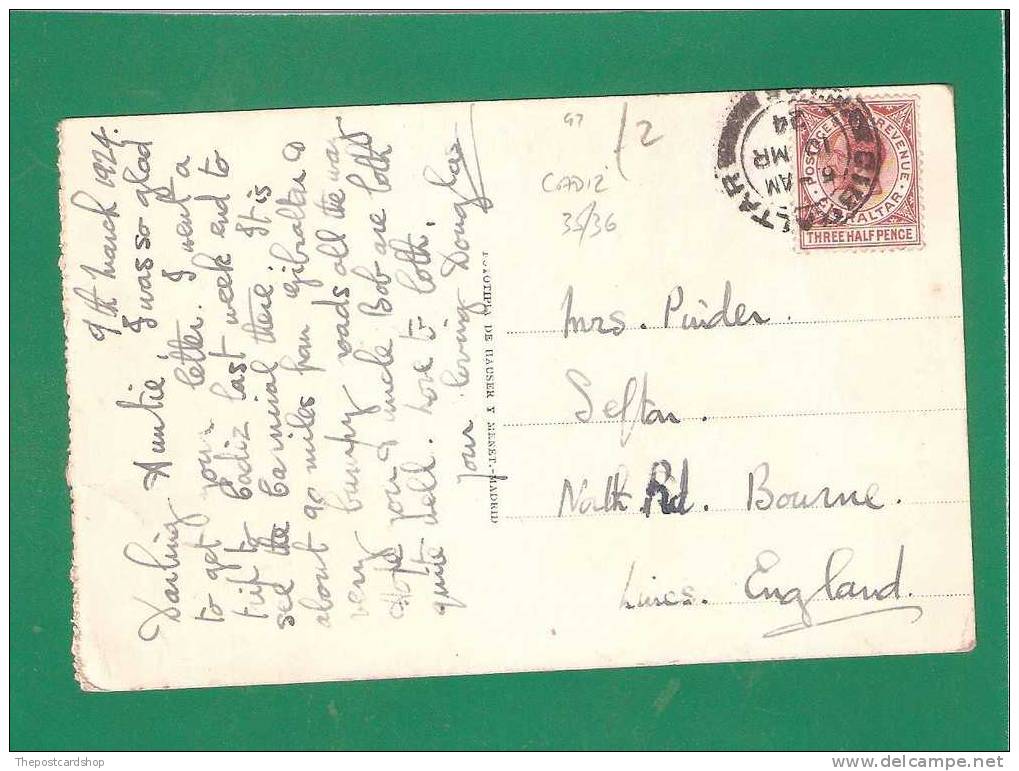 9th March 1924.
Darling Auntie, I was so glad
to get your letter. I went a
trip to Cadiz last week end to
see the Carnival there. It is
about 90 miles from Gibraltar &
very bumpy roads all the way
Hope you & Uncle Bob are both
quite well. Love to both.
Your loving Douglas
FOTOTIPIA DE HAUSER Y MENET.-MADRID
/2
CADIZ
35/36
GIBRALTAR
AM
10 MR
24
POSTAGE REVENUE
GIBRALTAR
THREE HALF PENCE
Mrs. Pinder.
Sefton.
North Rd. Bourne.
Lincs. England.
Thepostcardshop
delcampe.net